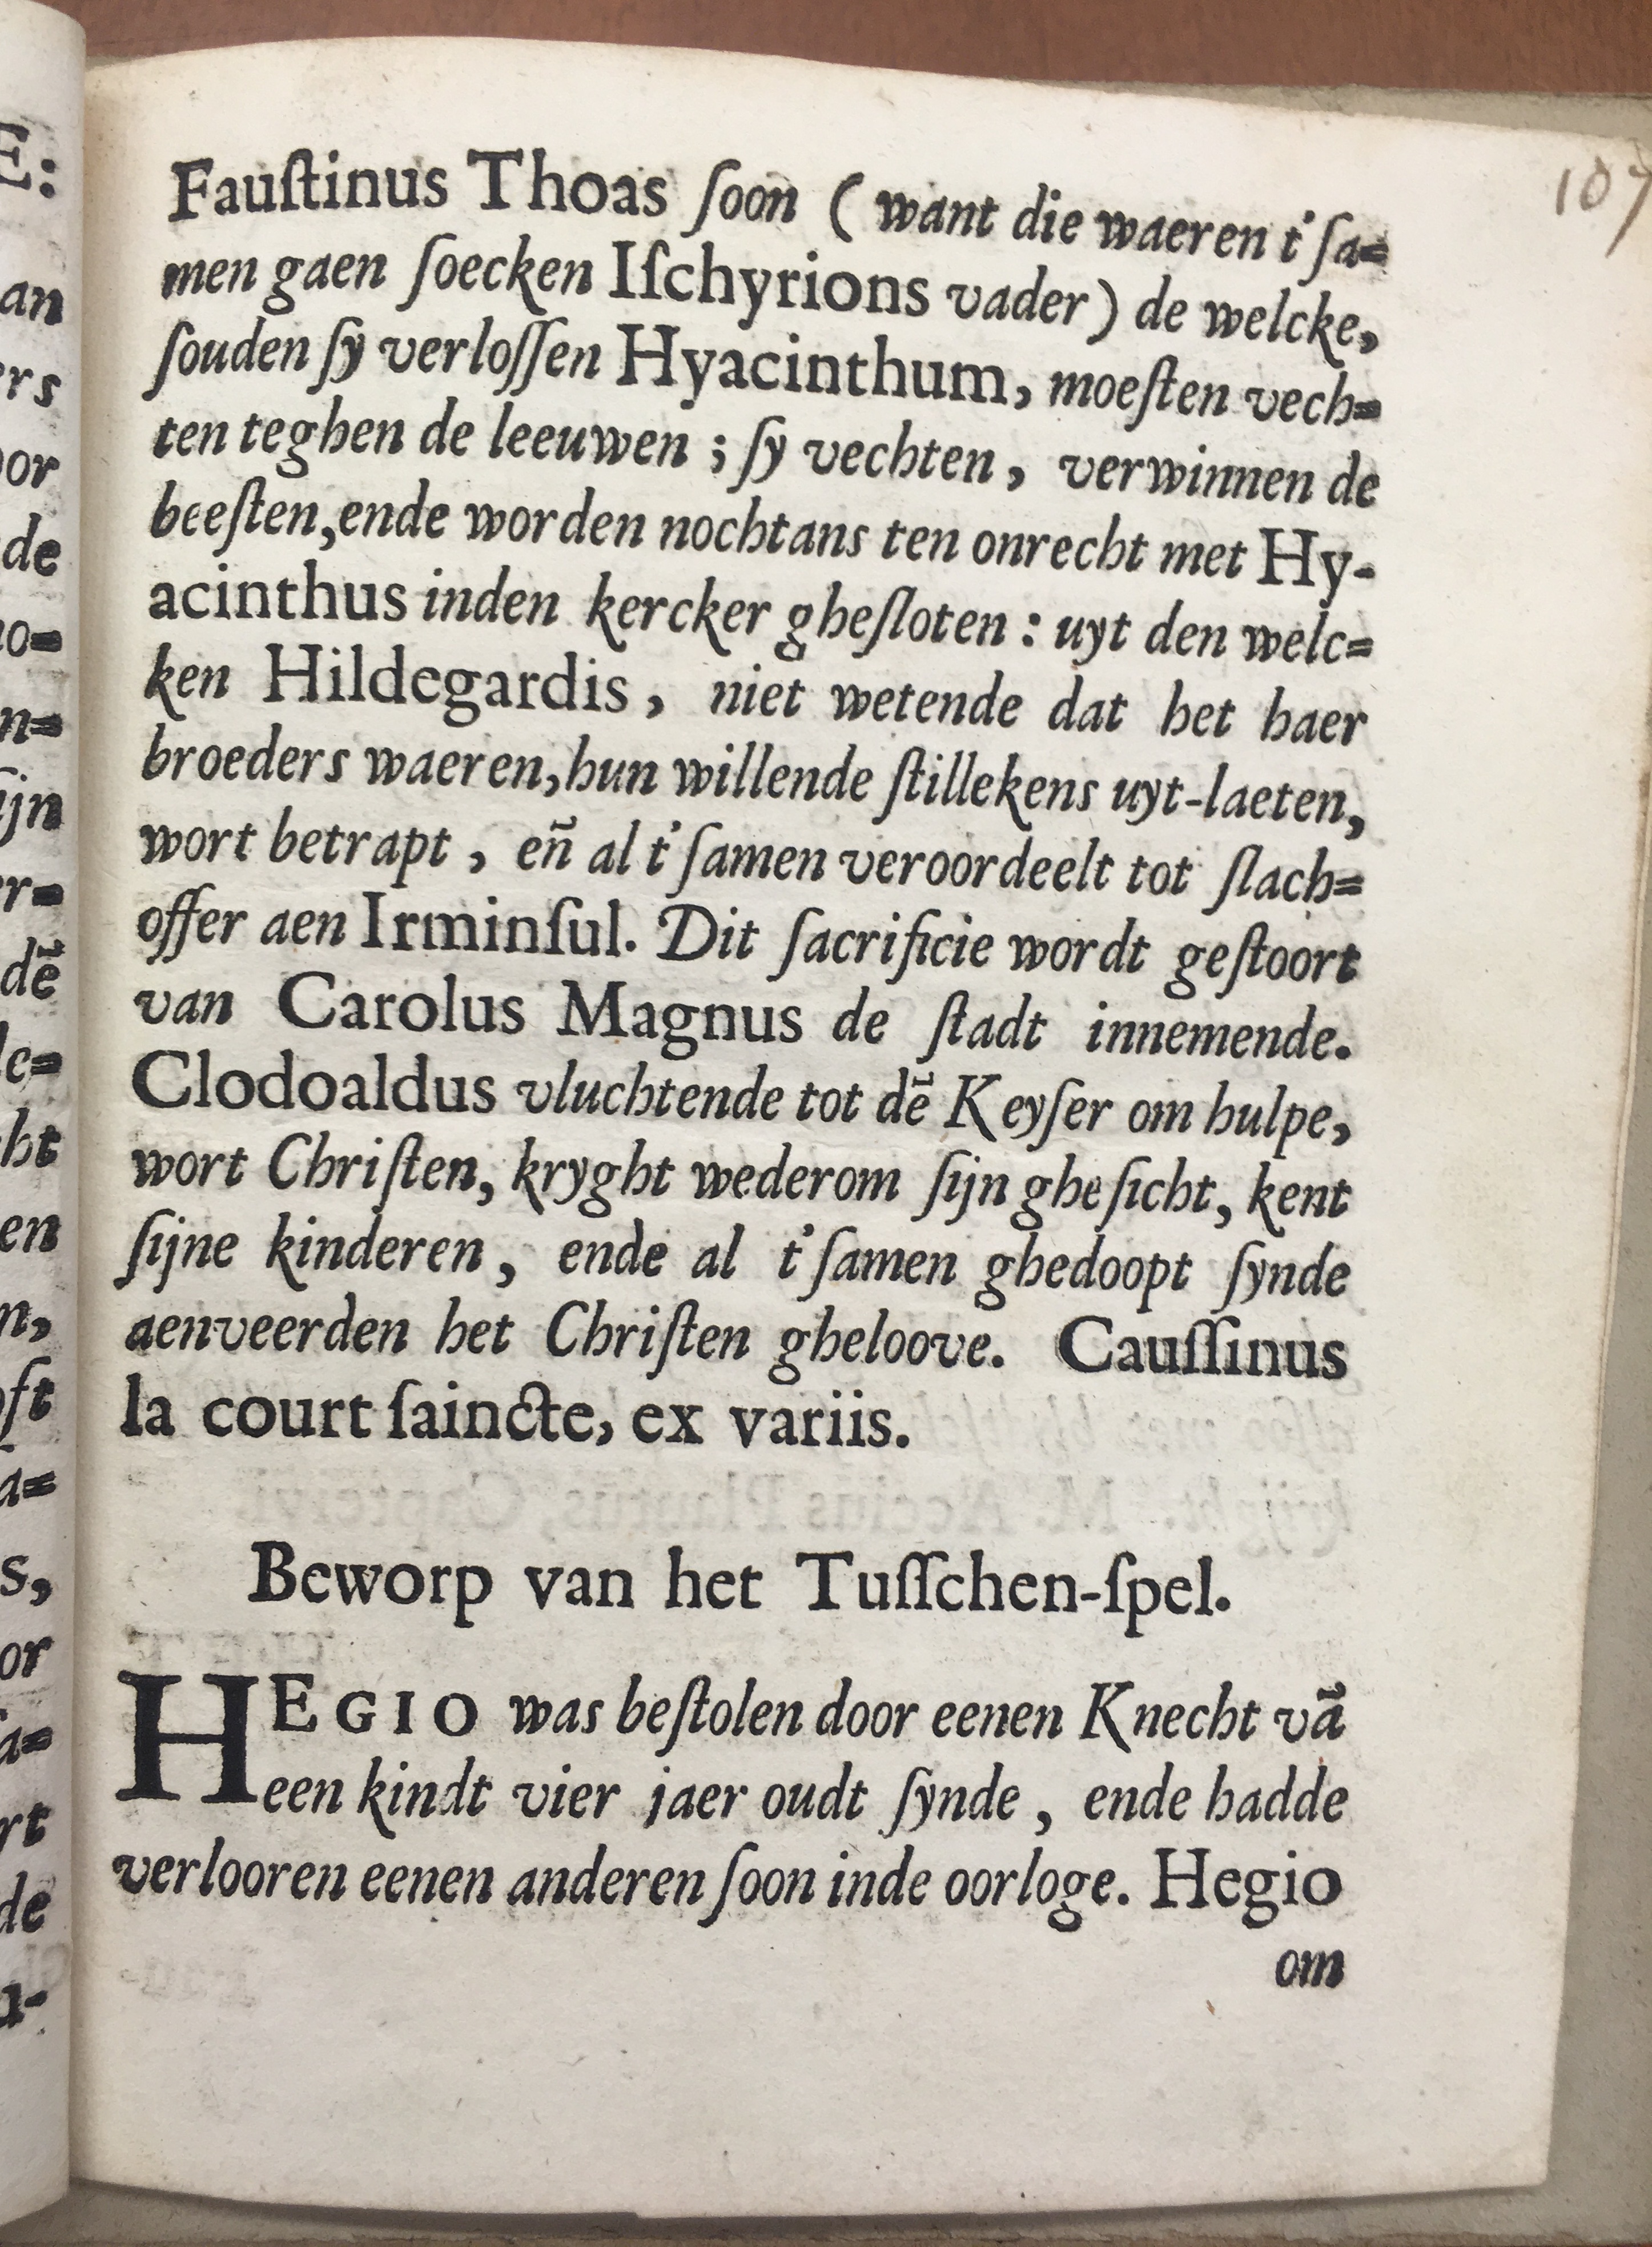 107
Fauſtinus Thoas ſoon ( want die waeren t'ſa=
men gaen ſoecken Iſchyrions vader) de welcke,
ſouden ſy verloſſen Hyacinthum, moeſten vech=
ten teghen de leeuwen ; ſy vechten, verwinnen de
beeſten, ende worden nochtans ten onrecht met Hy-
acinthus inden kercker gheſloten : uyt den welc=
ken Hildegardis, niet wetende dat het haer
broeders waeren, hun willende ſtillekens uyt-laeten,
wort betrapt, eñ al t'ſamen veroordeelt tot ſlach=
offer aen Irminſul. Dit ſacrificie wordt geſtoort
van Carolus Magnus de ſtadt innemende.
Clodoaldus vluchtende tot dẽ Keyſer om hulpe,
wort Chriſten, kryght wederom ſijn gheſicht, kent
ſijne kinderen, ende al t'ſamen ghedoopt ſynde
aenveerden het Chriſten gheloove. Cauſſinus
la court ſaincte, ex variis.
Beworp van het Tuſſchen-ſpel.
HEGIO was beſtolen door eenen Knecht vã
een kindt vier jaer oudt ſynde, ende hadde
verlooren eenen anderen ſoon inde oorloge. Hegio
om